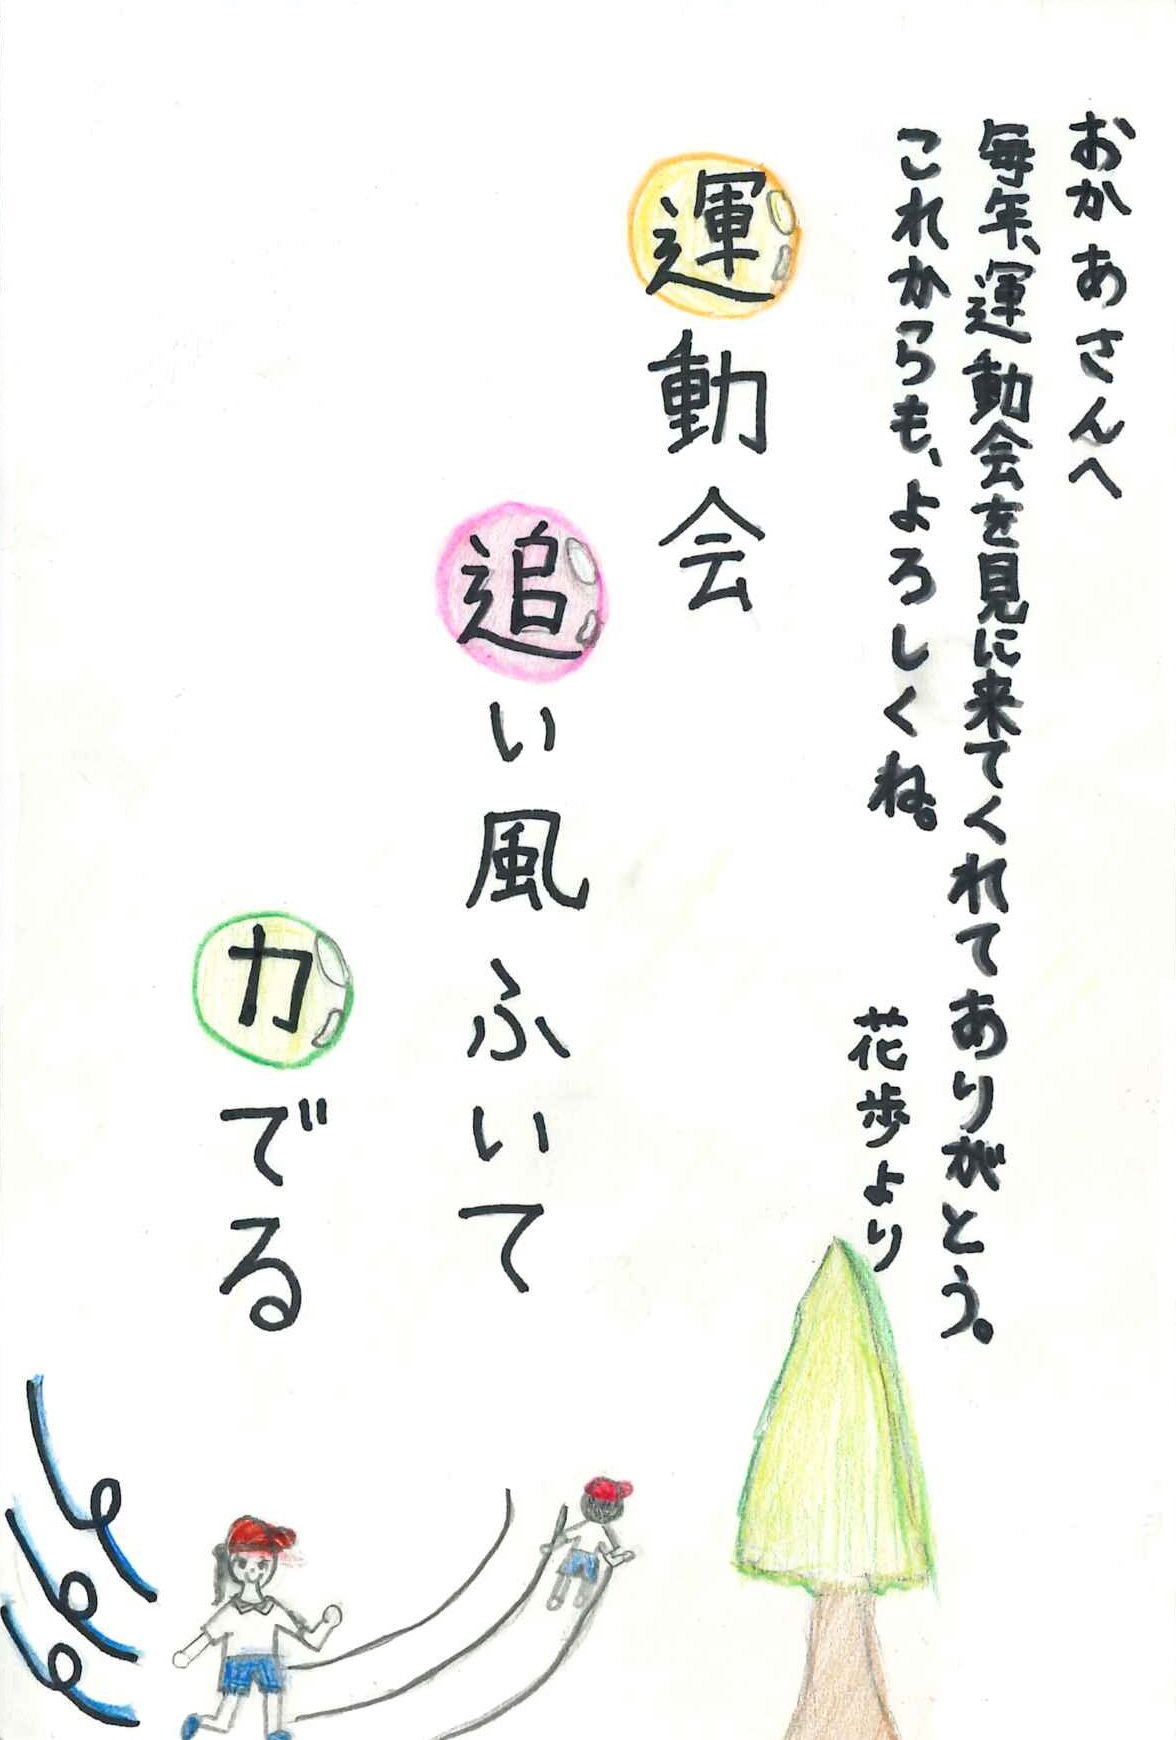 おかあさんへ
毎年、運動会を見に来てくれてありがとう。
これからも、よろしくね。
花歩より
運動会
追い風ふいて
力でる